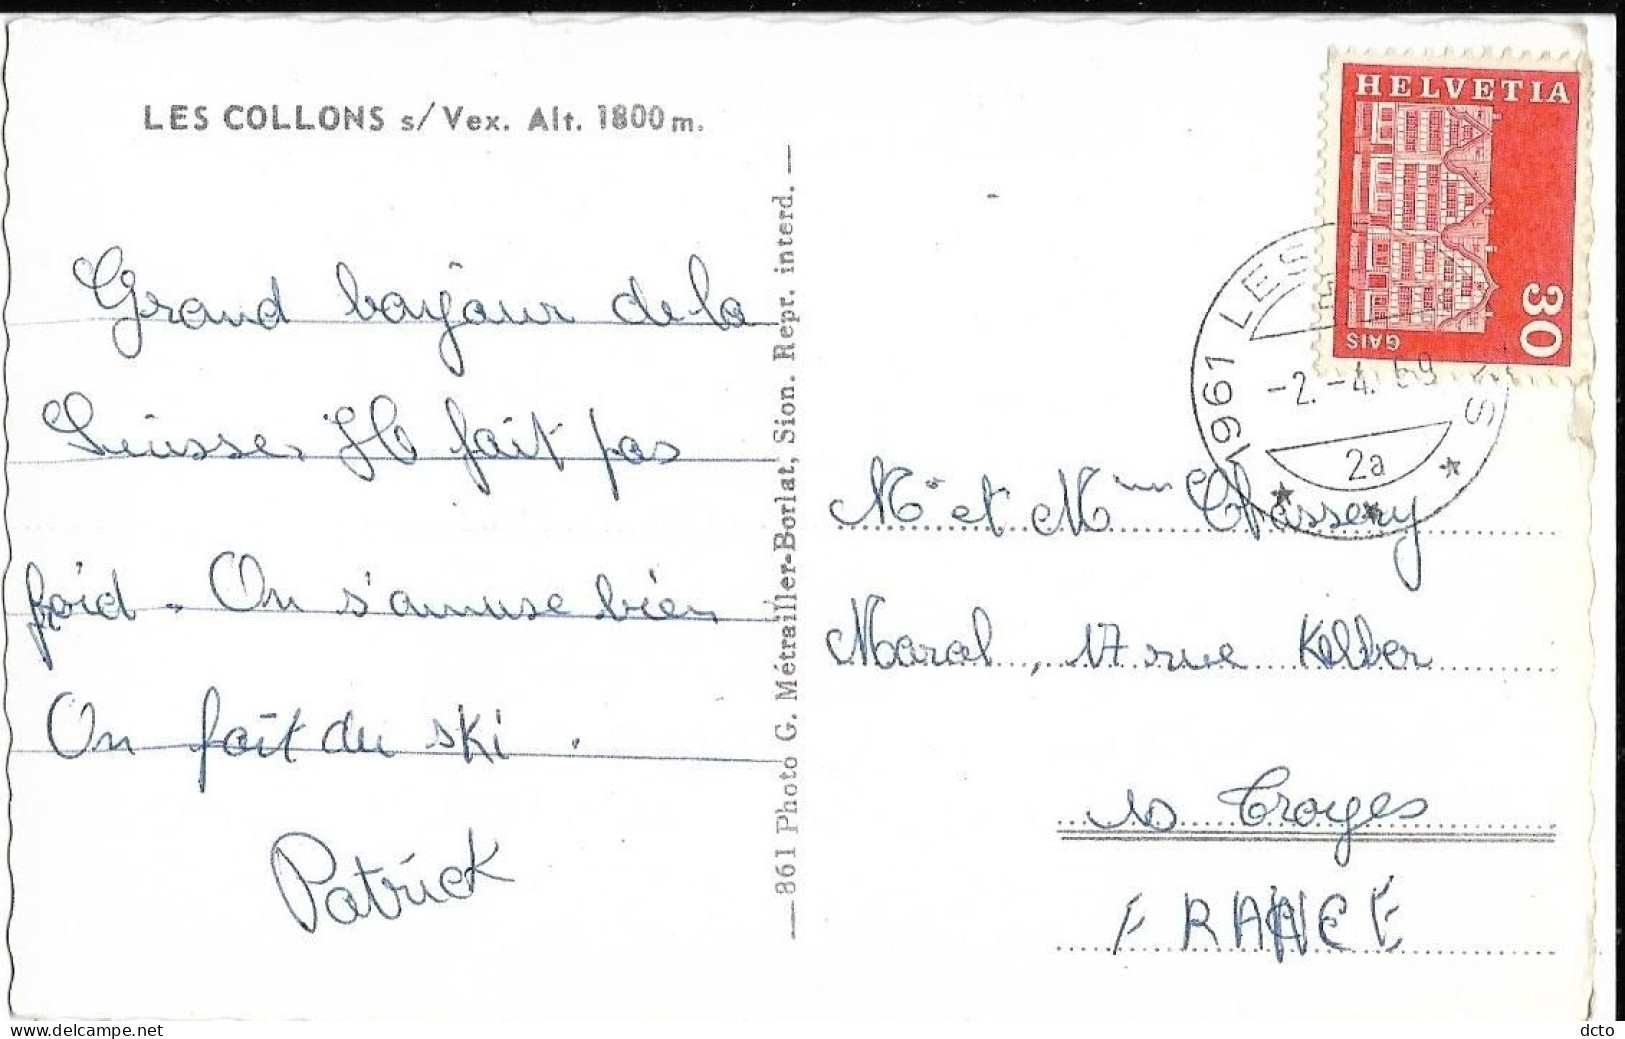 LES COLLONS s/Vex. Alt. 1800 m.
Grand bonjour de la
Suisse. Il fait pas
froid. On s'amuse bien
On fait du ski.
Patrick
861 Photo G. Métrailler-Borlat, Sion. Repr. interd.
HELVETIA
30
GAIS
1961 LES
S
-2.-4.69
2a
Mr et Mme Chassery
Maral, 17 rue Kléber
10 Troyes
FRANCE
www.delcampe.net
dcto